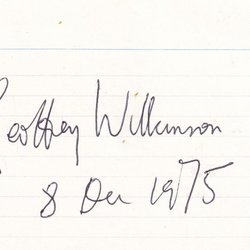 Geoffrey Wilkinson
8 Dec 1975